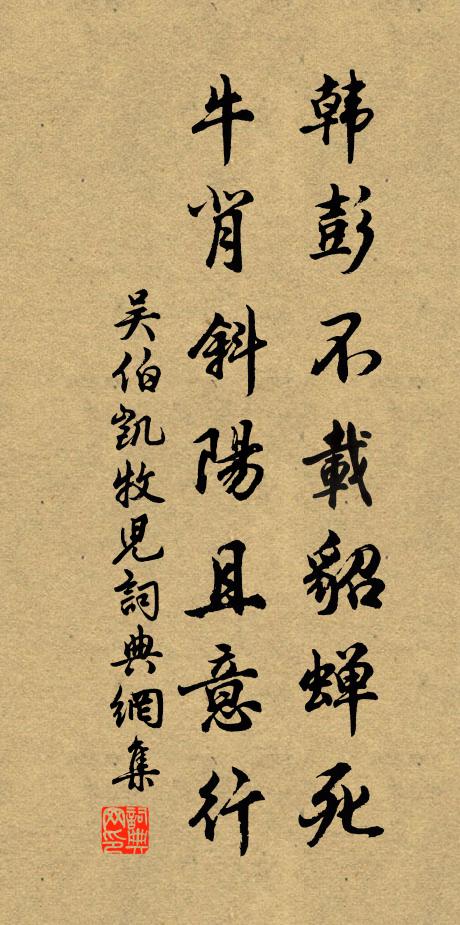 韩彭不載貂蟬死
牛背斜陽且意行
吴伯凯牧児詞典網集
詞典网印